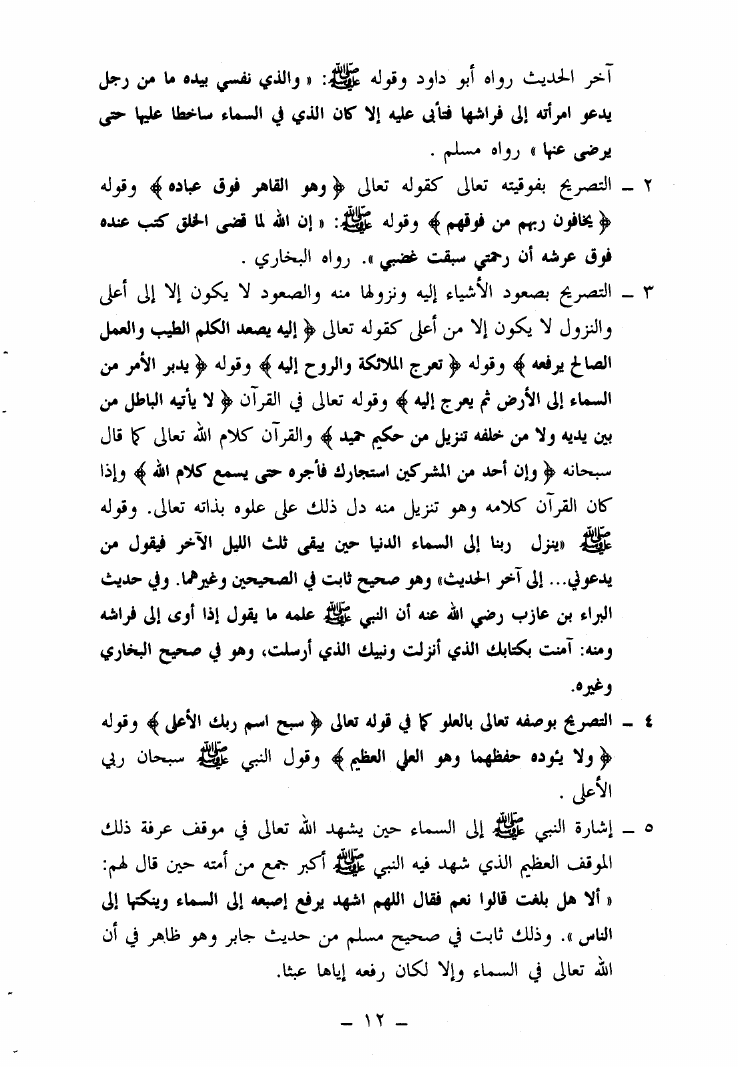 آخر الحديث رواه أبو داود وقوله ﷺ: « والذي نفسي بيده ما من رجل
يدعو امرأته إلى فراشها فتأبى عليه إلا كان الذي في السماء ساخطا عليها حتى
يرضى عنها » رواه مسلم .
٢ ـ التصريح بفوقيته تعالى كقوله تعالى ﴿ وهو القاهر فوق عباده ﴾ وقوله
﴿ يخافون ربهم من فوقهم ﴾ وقوله ﷺ: « إن الله لما قضى الخلق كتب عنده
فوق عرشه أن رحمتي سبقت غضبي ». رواه البخاري .
٣ ـ التصريح بصعود الأشياء إليه ونزولها منه والصعود لا يكون إلا إلى أعلى
والنزول لا يكون إلا من أعلى كقوله تعالى ﴿ إليه يصعد الكلم الطيب والعمل
الصالح يرفعه ﴾ وقوله ﴿ تعرج الملائكة والروح إليه ﴾ وقوله ﴿ يدبر الأمر من
السماء إلى الأرض ثم يعرج إليه ﴾ وقوله تعالى في القرآن ﴿ لا يأتيه الباطل من
بين يديه ولا من خلفه تنزيل من حكيم حميد ﴾ والقرآن كلام الله تعالى كما قال
سبحانه ﴿ وإن أحد من المشركين استجارك فأجره حتى يسمع كلام الله ﴾ وإذا
كان القرآن كلامه وهو تنزيل منه دل ذلك على علوه بذاته تعالى. وقوله
ﷺ «ينزل ربنا إلى السماء الدنيا حين يبقى ثلث الليل الآخر فيقول من
يدعوني... إلى آخر الحديث» وهو صحيح ثابت في الصحيحين وغيرهما. وفي حديث
البراء بن عازب رضي الله عنه أن النبي ﷺ علمه ما يقول إذا أوى إلى فراشه
ومنه: آمنت بكتابك الذي أنزلت ونبيك الذي أرسلت، وهو في صحيح البخاري
وغيره.
٤ ـ التصريح بوصفه تعالى بالعلو كما في قوله تعالى ﴿ سبح اسم ربك الأعلى ﴾ وقوله
﴿ ولا يئوده حفظهما وهو العلي العظيم ﴾ وقول النبي ﷺ سبحان ربي
الأعلى .
٥ ـ إشارة النبي ﷺ إلى السماء حين يشهد الله تعالى في موقف عرفة ذلك
الموقف العظيم الذي شهد فيه النبي ﷺ أكبر جمع من أمته حين قال لهم:
« ألا هل بلغت قالوا نعم فقال اللهم اشهد يرفع إصبعه إلى السماء وينكتها إلى
الناس ». وذلك ثابت في صحيح مسلم من حديث جابر وهو ظاهر في أن
الله تعالى في السماء وإلا لكان رفعه إياها عبثا.
ـ ١٢ ـ